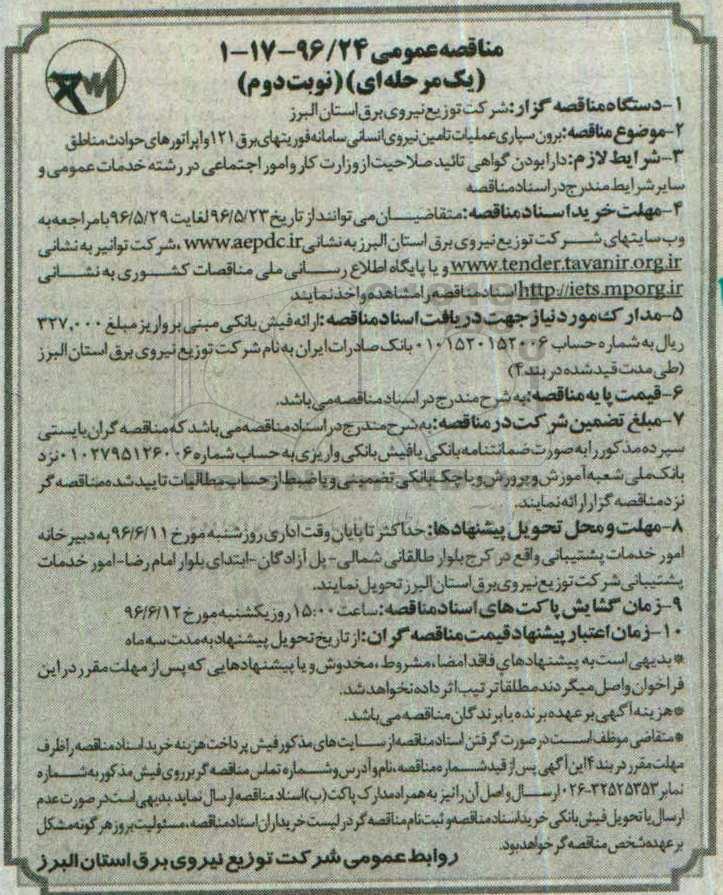 مناقصه عمومی ۹۶/۲۴-۱۷-۱
(یک مرحله ای) (نوبت دوم)
۱-دستگاه مناقصه گزار: شرکت توزیع نیروی برق استان البرز
۲-موضوع مناقصه: برون سپاری عملیات تامین نیروی انسانی سامانه فوریتهای برق ۱۲۱ و اپراتورهای حوادث مناطق
۳-شرایط لازم: دارا بودن گواهی تائید صلاحیت از وزارت کار و امور اجتماعی در رشته خدمات عمومی و
سایر شرایط مندرج در اسناد مناقصه
۴-مهلت خرید اسناد مناقصه: متقاضیان می توانند از تاریخ ۹۶/۵/۲۳ لغایت ۹۶/۵/۲۹ با مراجعه به
وب سایتهای شرکت توزیع نیروی برق استان البرز به نشانی www.aepdc.ir ،شرکت توانیر به نشانی
www.tender.tavanir.org.ir و یا پایگاه اطلاع رسانی ملی مناقصات کشوری به نشانی
http://iets.mporg.ir اسناد مناقصه را مشاهده و اخذ نمایند
۵-مدارک مورد نیاز جهت دریافت اسناد مناقصه: ارائه فیش بانکی مبنی بر واریز مبلغ ۳۲۷,۰۰۰
ریال به شماره حساب ۰۱۰۱۵۲۰۱۵۲۰۰۶ بانک صادرات ایران به نام شرکت توزیع نیروی برق استان البرز
(طی مدت قید شده در بند ۴)
۶-قیمت پایه مناقصه: به شرح مندرج در اسناد مناقصه می باشد.
۷-مبلغ تضمین شرکت در مناقصه: به شرح مندرج در اسناد مناقصه می باشد که مناقصه گران بایستی
سپرده مذکور را به صورت ضمانتنامه بانکی یا فیش بانکی واریزی به حساب شماره ۰۱۰۲۷۹۵۱۲۶۰۰۶ نزد
بانک ملی شعبه آموزش و پرورش و یا چک بانکی تضمینی و یا ضبط از حساب مطالبات تایید شده مناقصه گر
نزد مناقصه گزار ارائه نمایند.
۸-مهلت و محل تحویل پیشنهادها: حداکثر تا پایان وقت اداری روز شنبه مورخ ۹۶/۶/۱۱ به دبیرخانه
امور خدمات پشتیبانی واقع در کرج بلوار طالقانی شمالی- پل آزادگان -ابتدای بلوار امام رضا-امور خدمات
پشتیبانی شرکت توزیع نیروی برق استان البرز تحویل نمایند.
۹-زمان گشایش پاکت های اسناد مناقصه: ساعت ۱۵:۰۰ روز یکشنبه مورخ ۹۶/۶/۱۲
۱۰-زمان اعتبار پیشنهاد قیمت مناقصه گران: از تاریخ تحویل پیشنهاد به مدت سه ماه
*بدیهی است به پیشنهادهای فاقد امضا، مشروط، مخدوش و یا پیشنهادهایی که پس از مهلت مقرر در این
فراخوان واصل میگردند مطلقا ترتیب اثر داده نخواهد شد.
*هزینه آگهی بر عهده برنده یا برندگان مناقصه می باشد.
*متقاضی موظف است در صورت گرفتن اسناد مناقصه از سایت های مذکور فیش پرداخت هزینه خرید اسناد مناقصه را ظرف
مهلت مقرر در بند ۴ این آگهی پس از قید شماره مناقصه، نام و آدرس و شماره تماس مناقصه گر بر روی فیش مذکور به شماره
نمابر ۳۲۵۲۵۳۵۳-۰۲۶ ارسال و اصل آن را نیز به همراه مدارک پاکت (ب) اسناد مناقصه ارسال نماید. بدیهی است در صورت عدم
ارسال یا تحویل فیش بانکی خرید اسناد مناقصه و ثبت نام مناقصه گر در لیست خریداران اسناد مناقصه، مسئولیت بروز هر گونه مشکل
بر عهده شخص مناقصه گر خواهد بود.
روابط عمومی شرکت توزیع نیروی برق استان البرز